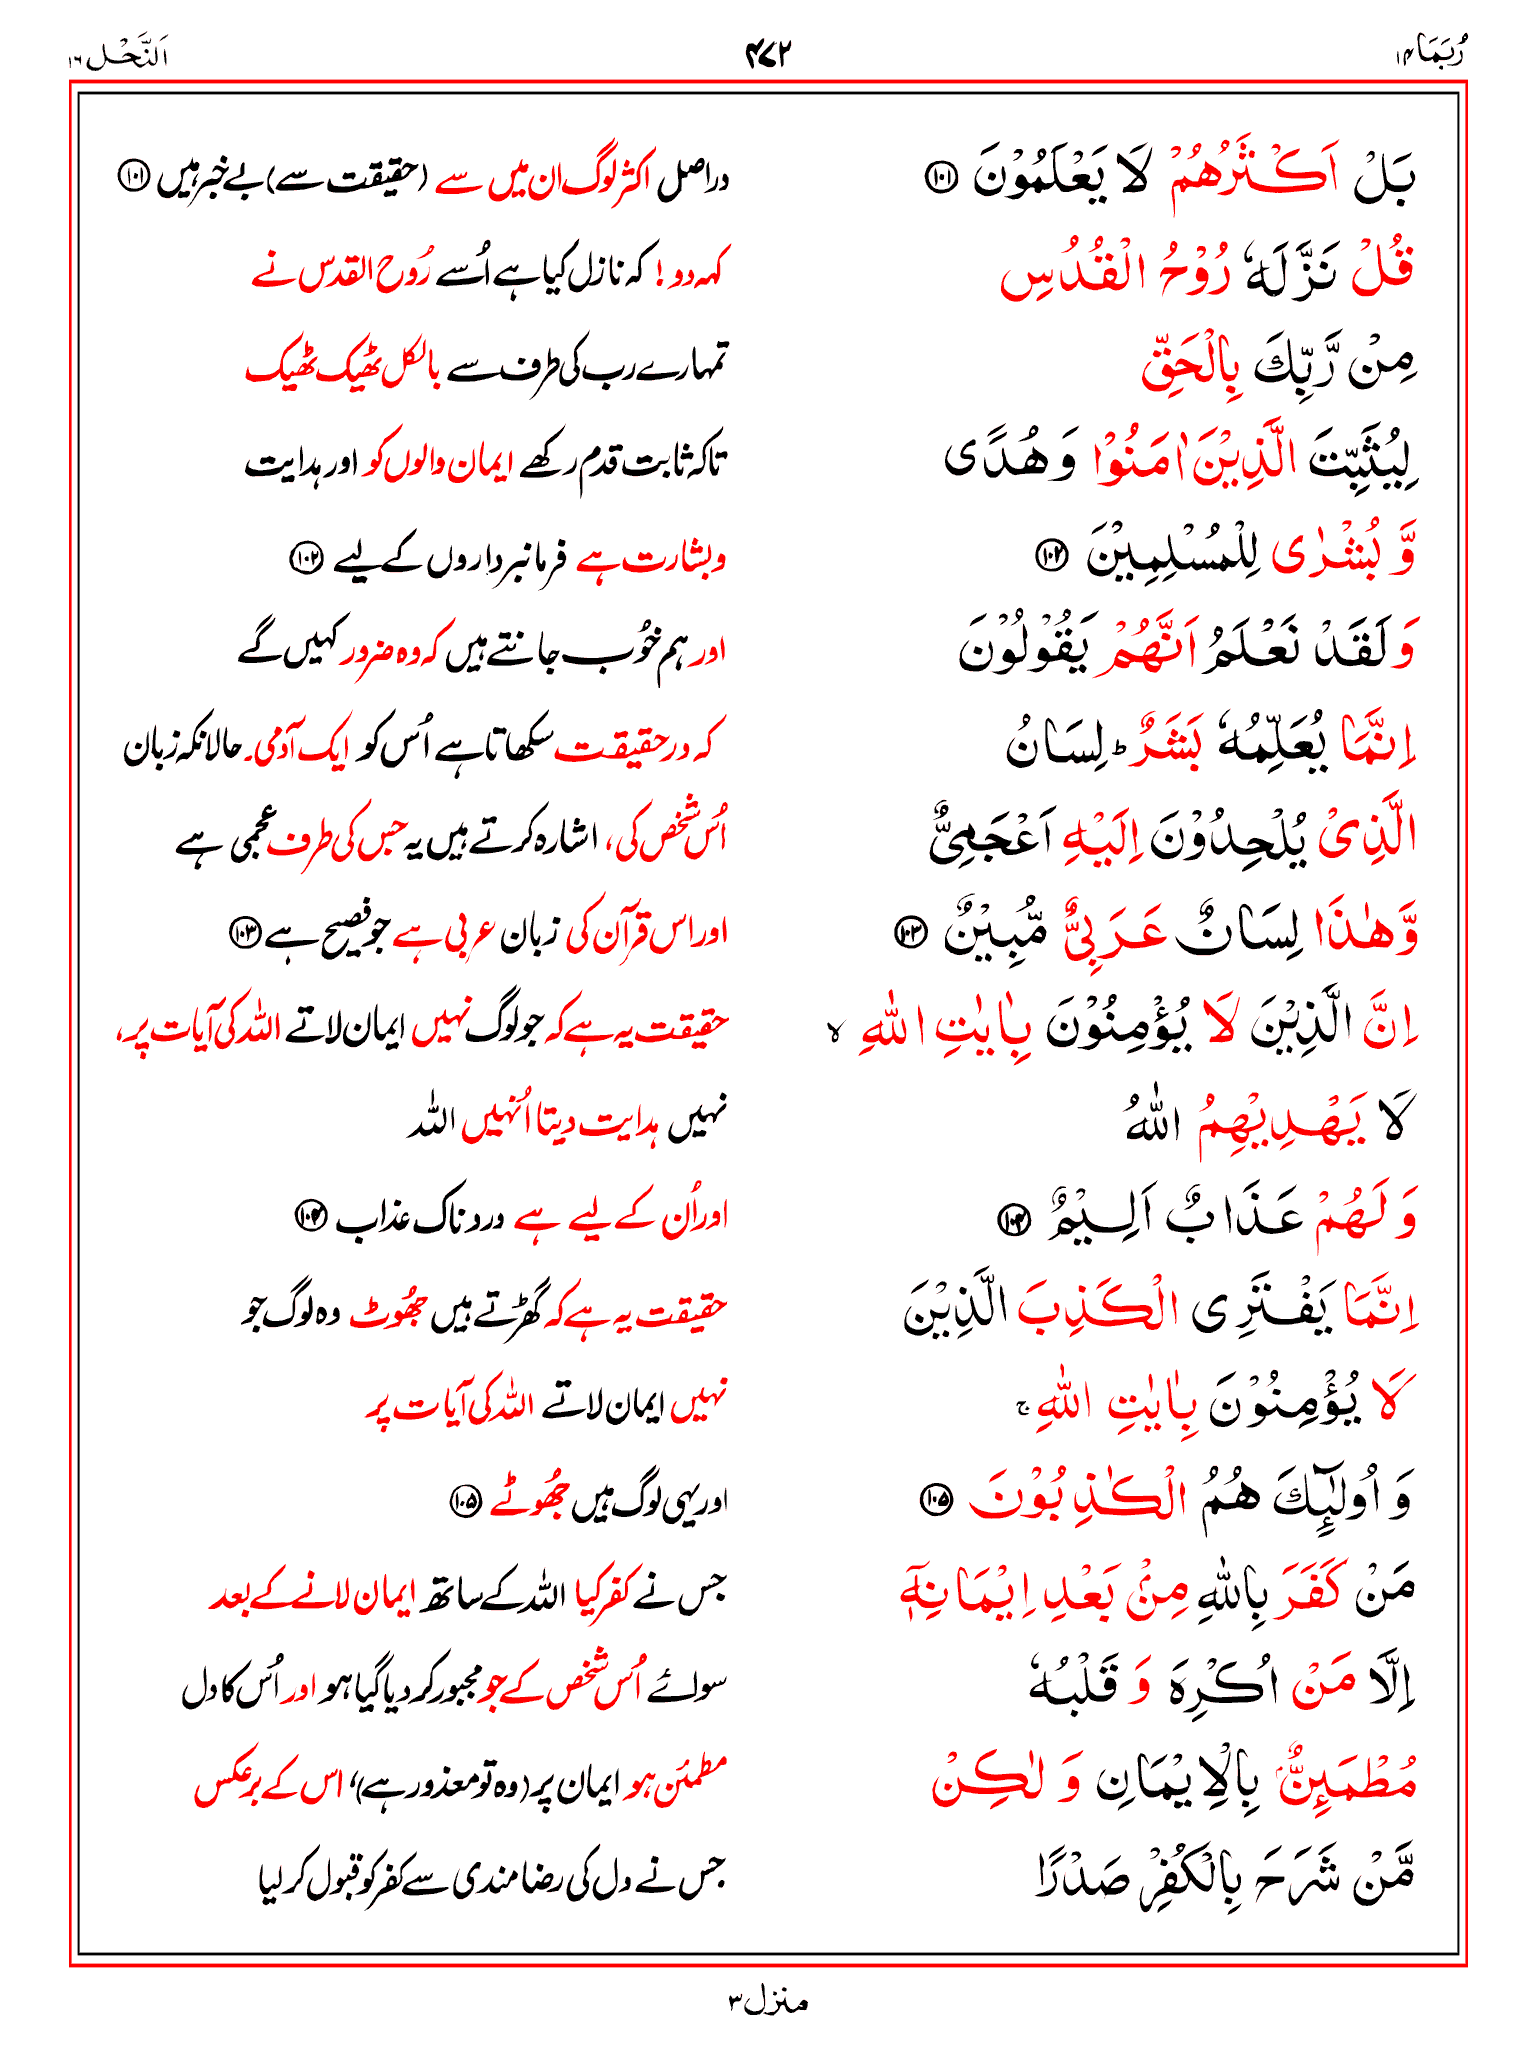 رُبَمَا ۱۴ ۴۷۲ اَلنَّحْل ۱۶
بَلْ اَكْثَرُهُمْ لَا يَعْلَمُوْنَ ۱۰۱ دراصل اکثر لوگ ان میں سے (حقیقت سے) بے خبر ہیں ۱۰۱
قُلْ نَزَّلَهٗ رُوْحُ الْقُدُسِ کہہ دو! کہ نازل کیا ہے اُسے رُوح القدس نے
مِنْ رَّبِّكَ بِالْحَقِّ تمہارے رب کی طرف سے بالکل ٹھیک ٹھیک
لِيُثَبِّتَ الَّذِيْنَ اٰمَنُوْا وَهُدًى تاکہ ثابت قدم رکھے ایمان والوں کو اور ہدایت
وَّ بُشْرٰى لِلْمُسْلِمِيْنَ ۱۰۲ و بشارت ہے فرمانبرداروں کے لیے ۱۰۲
وَلَقَدْ نَعْلَمُ اَنَّهُمْ يَقُوْلُوْنَ اور ہم خُوب جانتے ہیں کہ وہ ضرور کہیں گے
اِنَّمَا يُعَلِّمُهٗ بَشَرٌ ؕ لِسَانُ کہ درحقیقت سکھاتا ہے اُس کو ایک آدمی۔ حالانکہ زبان
الَّذِىْ يُلْحِدُوْنَ اِلَيْهِ اَعْجَمِىٌّ اُس شخص کی، اشارہ کرتے ہیں یہ جس کی طرف عجمی ہے
وَّهٰذَا لِسَانٌ عَرَبِىٌّ مُّبِيْنٌ ۱۰۳ اور اس قرآن کی زبان عربی ہے جو فصیح ہے ۱۰۳
اِنَّ الَّذِيْنَ لَا يُؤْمِنُوْنَ بِاٰيٰتِ اللّٰهِ ۙ حقیقت یہ ہے کہ جو لوگ نہیں ایمان لاتے اللہ کی آیات پر،
لَا يَهْدِيْهِمُ اللّٰهُ نہیں ہدایت دیتا اُنہیں اللہ
وَلَهُمْ عَذَابٌ اَلِيْمٌ ۱۰۴ اور اُن کے لیے ہے دردناک عذاب ۱۰۴
اِنَّمَا يَفْتَرِى الْكَذِبَ الَّذِيْنَ حقیقت یہ ہے کہ گھڑتے ہیں جھُوٹ وہ لوگ جو
لَا يُؤْمِنُوْنَ بِاٰيٰتِ اللّٰهِ ۚ نہیں ایمان لاتے اللہ کی آیات پر
وَ اُولٰٓئِكَ هُمُ الْكٰذِبُوْنَ ۱۰۵ اور یہی لوگ ہیں جھُوٹے ۱۰۵
مَنْ كَفَرَ بِاللّٰهِ مِنْۢ بَعْدِ اِيْمَانِهٖٓ جس نے کفر کیا اللہ کے ساتھ ایمان لانے کے بعد
اِلَّا مَنْ اُكْرِهَ وَ قَلْبُهٗ سوائے اُس شخص کے جو مجبور کر دیا گیا ہو اور اُس کا دل
مُطْمَئِنٌّۢ بِالْاِيْمَانِ وَ لٰكِنْ مطمئن ہو ایمان پر (وہ تو معذور ہے)، اس کے برعکس
مَّنْ شَرَحَ بِالْكُفْرِ صَدْرًا جس نے دل کی رضا مندی سے کفر کو قبول کر لیا
منزل ۳